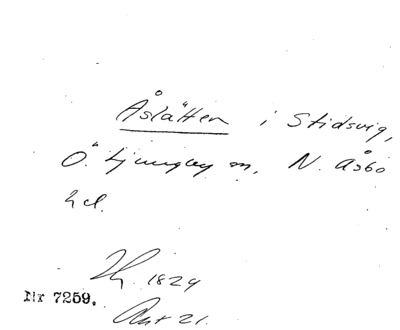 Åslätten i Stidsvig,
Ö. Ljungby sn, N. Åsbo
hd.
Hy. 1829
Nr 7259.
Akt 21.